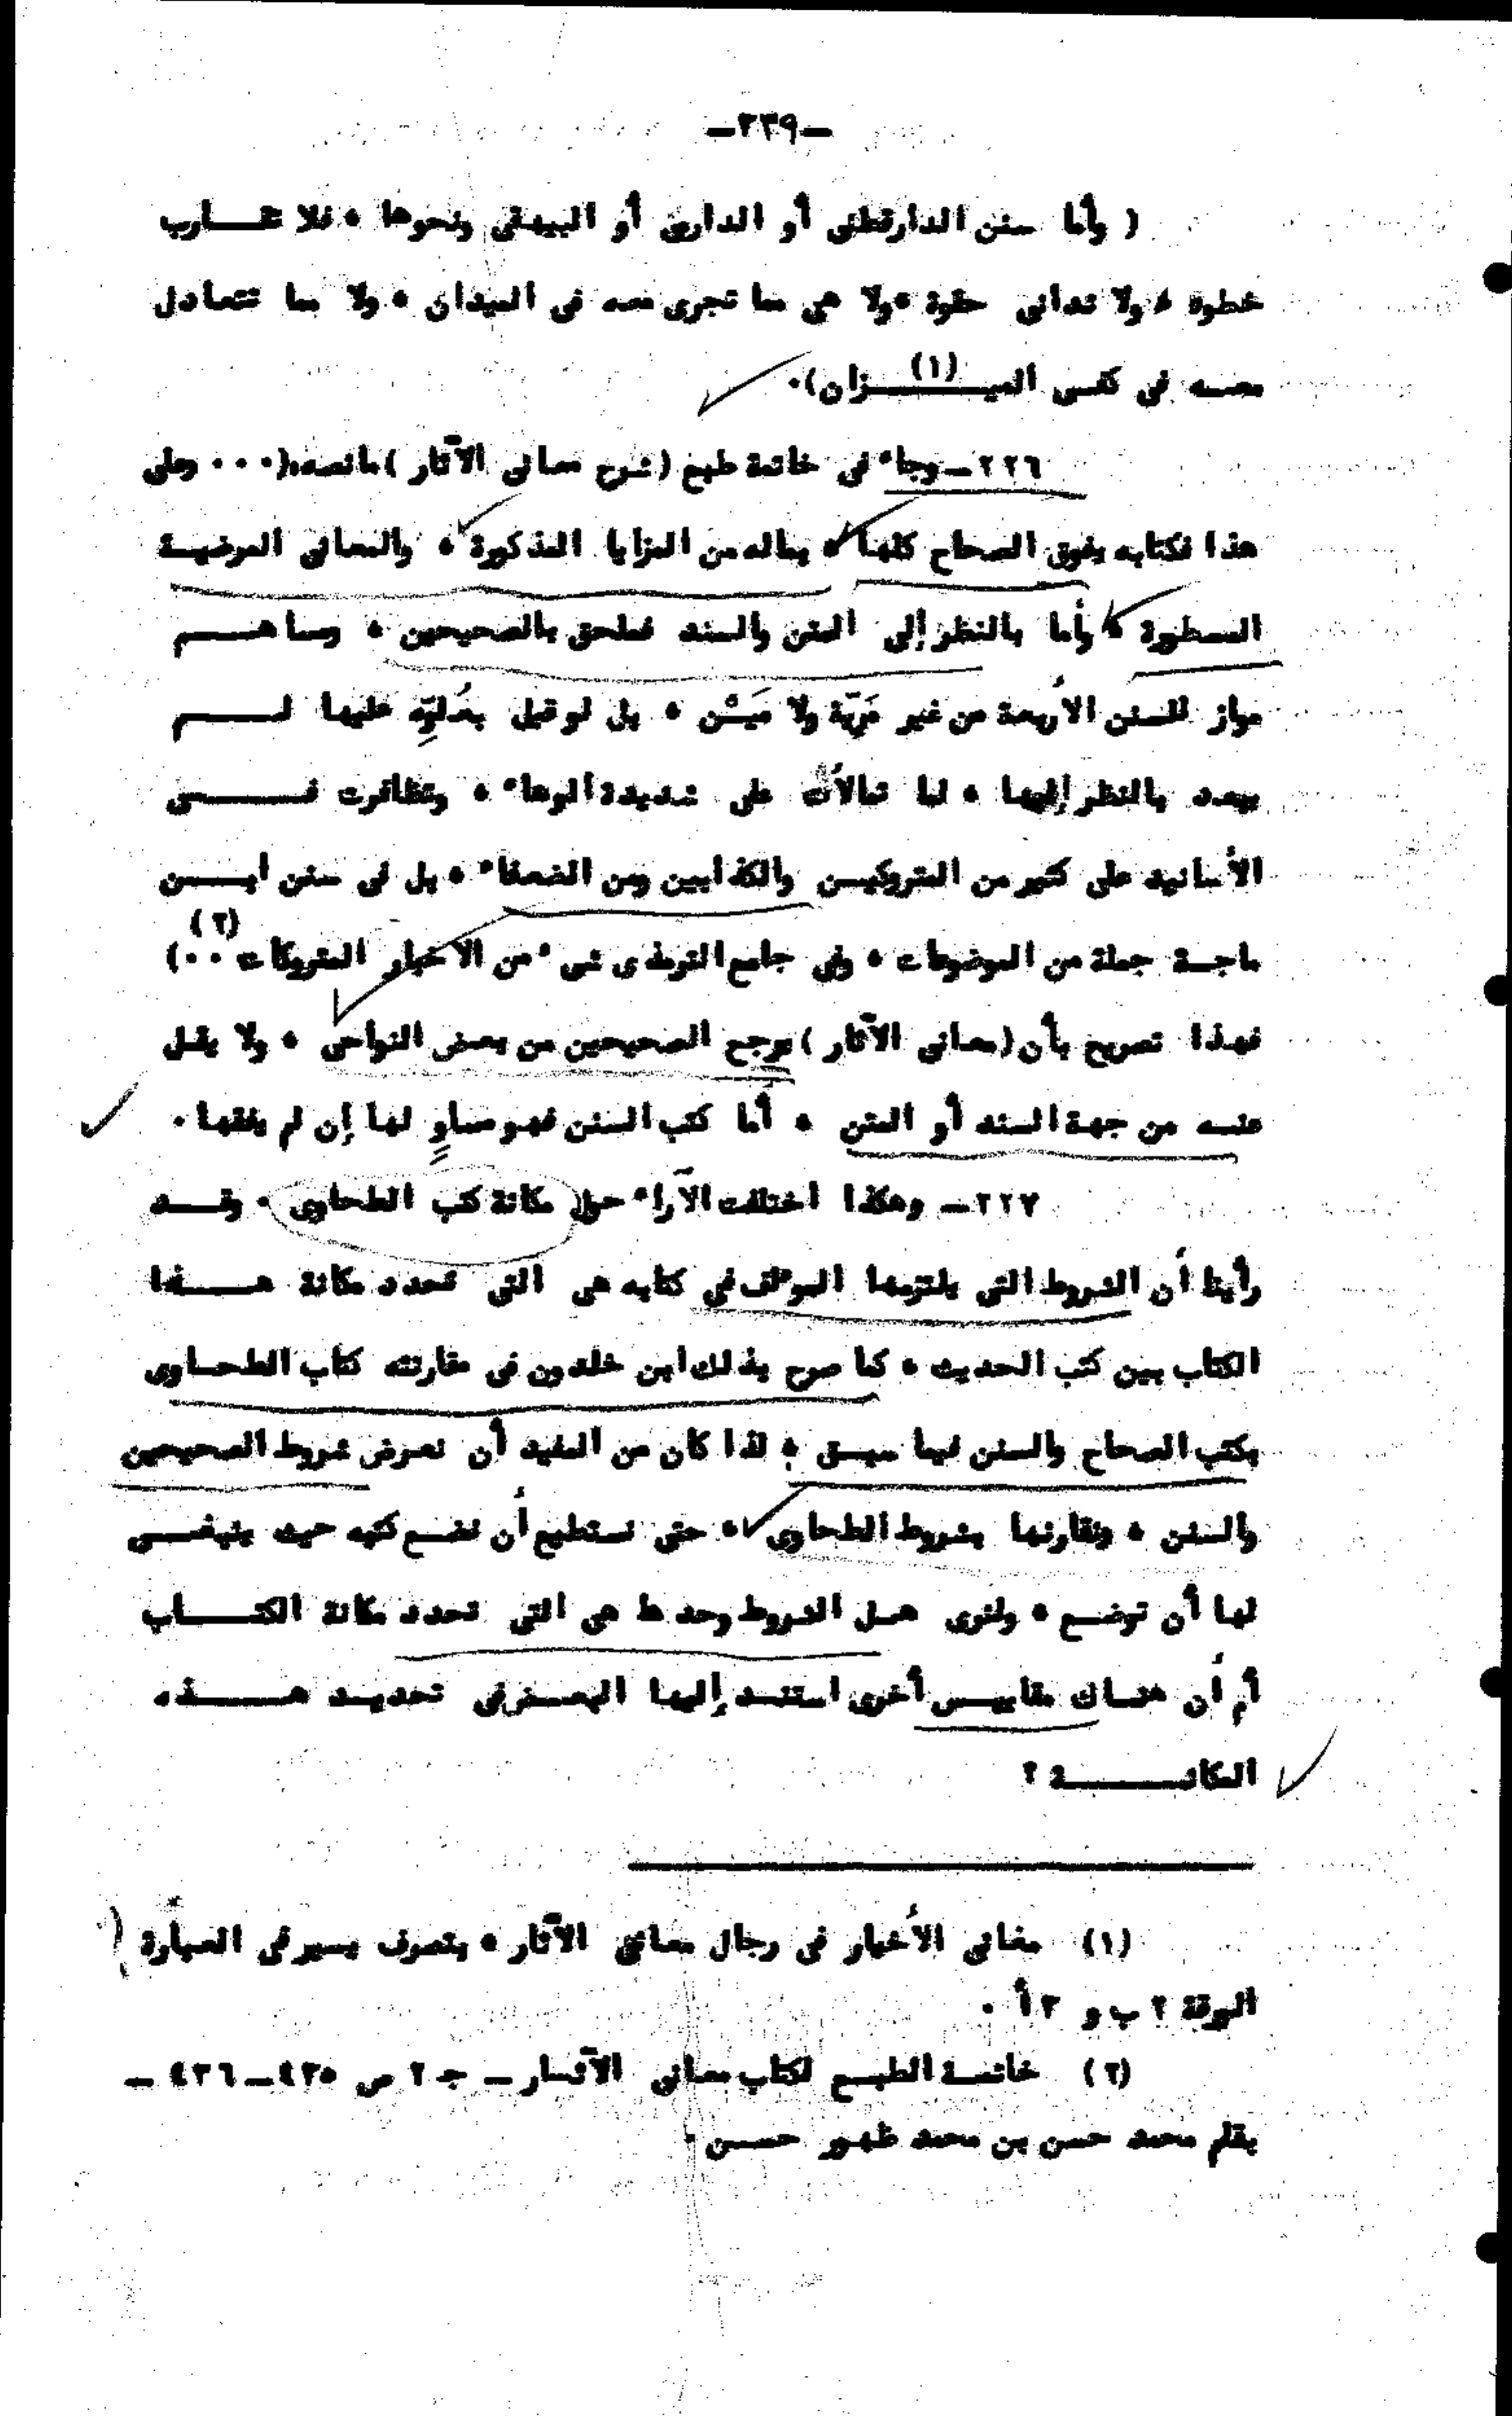 -٢٣٩-
( وأما سنن الدارقطنى أو الدارمى أو البيهقى ونحوها ، فلا تقارب
خطوه ، ولا تدانى حقوه ، ولا هى مما تجرى معه فى الميدان ، ولا مما تتعادل
معه فى كفتى الميزان)(١).
٢٢٦ـ وجاء فى خاتمة طبع (شرح معانى الآثار) مانصه:(٠٠٠ وعلى
هذا فكتابه يفوق الصحاح كلها ، بماله من المزايا المذكورة ، والمعانى المرضية
المسطورة ، وأما بالنظر إلى المتن والسند فملحق بالصحيحين ، ومساهم
مواز للسنن الأربعة من غير مَرِيّة ولا مَيْن ، بل لو قيل بعُلوّه عليها لم
يبعد بالنظر إليها ، لما تمالأت على شديدة الوهاء ، وتظافرت فى
الأسانيد على كثير من المتروكين والكذابين ومن الضعفاء ، بل فى سنن ابن
ماجة جملة من الموضوعات ، وفى جامع الترمذى شىء من الاخبار المتروكات ٠٠)(٢)
فهذا تصريح بأن (معانى الآثار) يرجح الصحيحين من بعض النواحى ، ولا يقل
عنه من جهة السند أو المتن ، أما كتب السنن فهو مساوٍ لها إن لم يفقها .
٢٢٧ـ وهكذا اختلفت الآراء حول مكانة كتب الطحاوى . وقد
رأينا أن الشروط التى يلتزمها المؤلف فى كتابه هى التى تحدد مكانة هذا
الكتاب بين كتب الحديث ، كما صرح بذلك ابن خلدون فى مقارنته كتاب الطحاوى
بكتب الصحاح والسنن فيما سبق ، لذا كان من المفيد أن نعرض شروط الصحيحين
والسنن ، ونقارنها بشروط الطحاوى ، حتى نستطيع أن نضع كتبه حيث ينبغى
لها أن توضع ، ولنرى هل الشروط وحدها هى التى تحدد مكانة الكتاب
أم أن هناك مقاييس أخرى استند إليها البعض فى تحديد هذه
المكانة ؟
(١) مغانى الأخيار فى رجال معانى الآثار ، بتصرف يسير فى العبارة (
الورقة ٢ ب و ٣ أ .
(٢) خاتمة الطبع لكتاب معانى الآثار ـ جـ ٢ ص ٤٣٥ـ٤٣٦ ـ
بقلم محمد حسن بن محمد ظهور حسن .